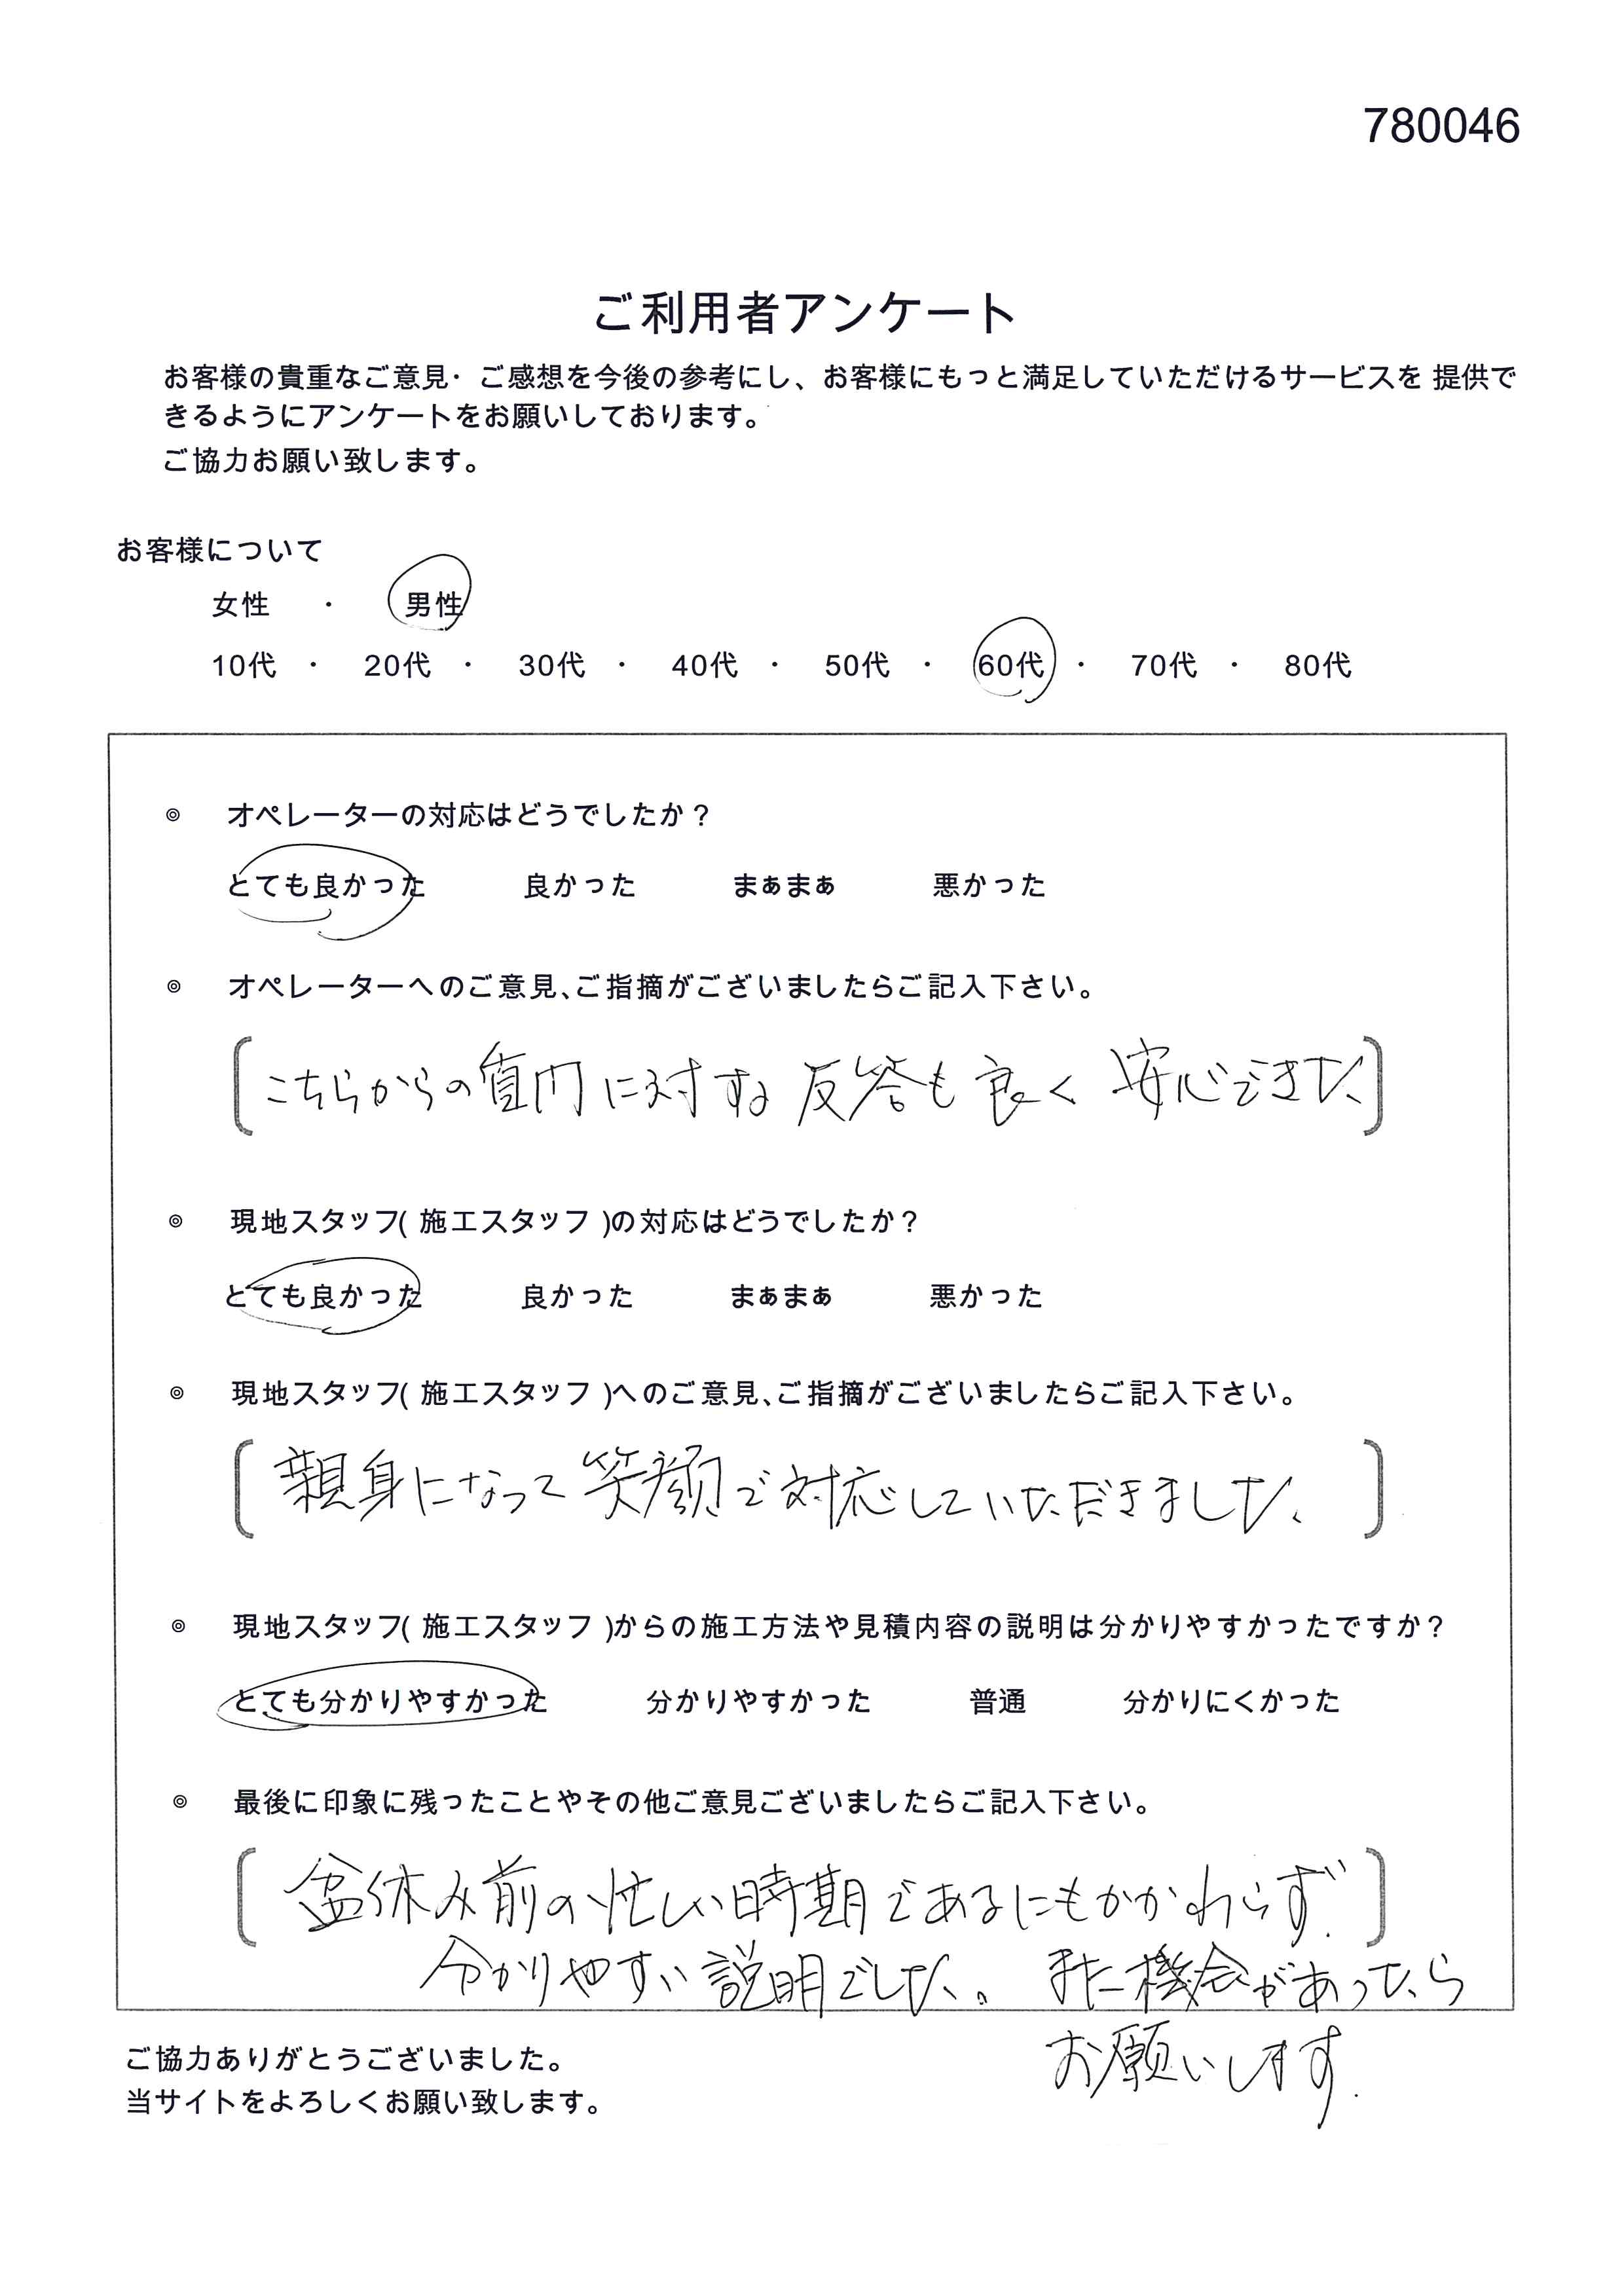 780046
ご利用者アンケート
お客様の貴重なご意見・ご感想を今後の参考にし、お客様にもっと満足していただけるサービスを 提供で
きるようにアンケートをお願いしております。
ご協力お願い致します。
お客様について
女性 ・ 男性
10代 ・ 20代 ・ 30代 ・ 40代 ・ 50代 ・ 60代 ・ 70代 ・ 80代
◎ オペレーターの対応はどうでしたか？
とても良かった 良かった まぁまぁ 悪かった
◎ オペレーターへのご意見、ご指摘がございましたらご記入下さい。
こちらからの質問に対する 反答も良く 安心できた
◎ 現地スタッフ( 施工スタッフ )の対応はどうでしたか？
とても良かった 良かった まぁまぁ 悪かった
◎ 現地スタッフ( 施工スタッフ )へのご意見、ご指摘がございましたらご記入下さい。
親身になって笑顔で対応していただきました、
◎ 現地スタッフ( 施工スタッフ )からの施工方法や見積内容の説明は分かりやすかったですか？
とても分かりやすかった 分かりやすかった 普通 分かりにくかった
◎ 最後に印象に残ったことやその他ご意見ございましたらご記入下さい。
盆休み前の忙しい時期であるにもかかわらず.
分かりやすい説明でした。 また機会があったら
お願いします.
ご協力ありがとうございました。
当サイトをよろしくお願い致します。